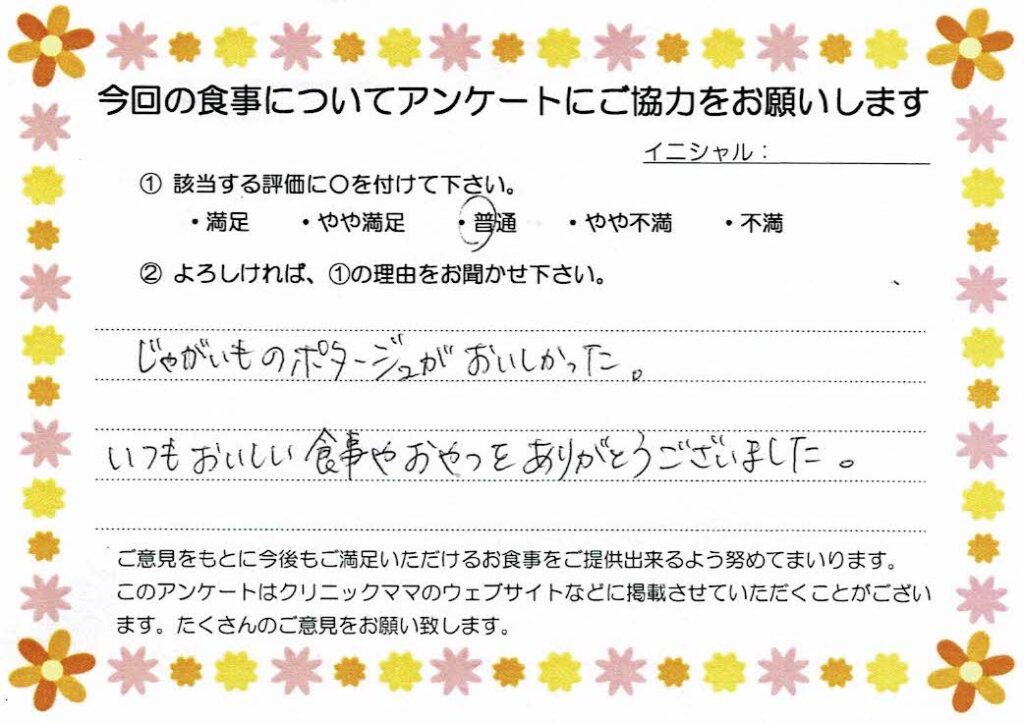 今回の食事についてアンケートにご協力をお願いします
イニシャル：
① 該当する評価に〇を付けて下さい。
・満足 ・やや満足 ・普通 ・やや不満 ・不満
② よろしければ、①の理由をお聞かせ下さい。
じゃがいものポタージュがおいしかった。
いつもおいしい食事やおやつをありがとうございました。
ご意見をもとに今後もご満足いただけるお食事をご提供出来るよう努めてまいります。
このアンケートはクリニックママのウェブサイトなどに掲載させていただくことがござい
ます。たくさんのご意見をお願い致します。